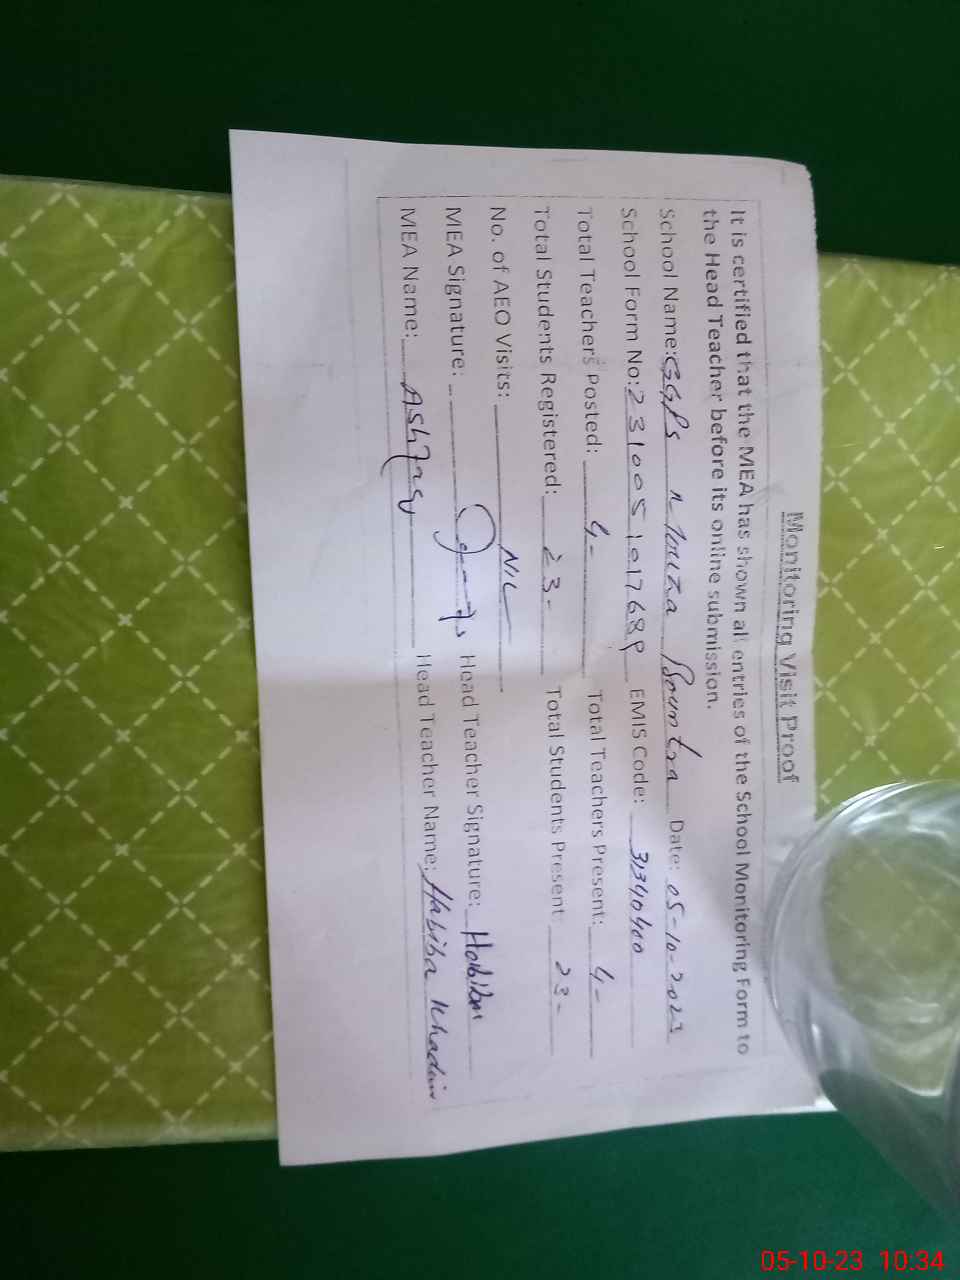 Monitoring Visit Proof
It is certified that the MEA has shown all entries of the School Monitoring Form to
the Head Teacher before its online submission.
School Name: GGPS Date: 05-10-2023
School Form No: EMIS Code: 31340400
Total Teachers Posted: 4- Total Teachers Present: 4-
Total Students Registered: 23- Total Students Present: 23-
No. of AEO Visits: NIL
MEA Signature: Head Teacher Signature:
MEA Name: Head Teacher Name: Habiba
05-10-23 10:34